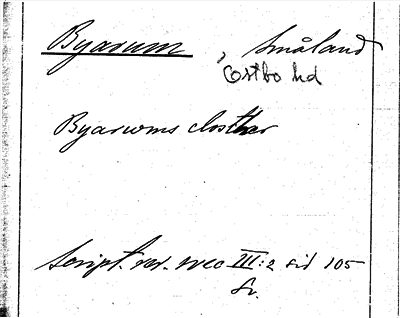 Byarum, Småland
Östbo hd
Byarums closther
Script. rer. svec III:2 sid 105
fv.